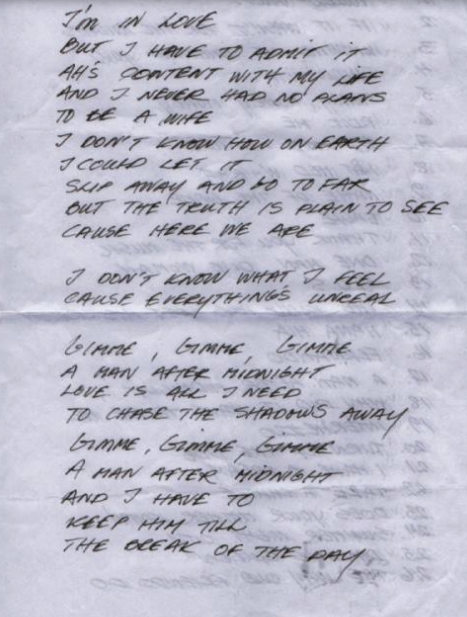 I'm IN LOVE
BUT I HAVE TO ADMIT IT
AH'S CONTENT WITH MY LIFE
AND I NEVER HAD NO PLANS
TO BE A WIFE
I DON'T KNOW HOW ON EARTH
I COULD LET IT
SLIP AWAY AND GO TO FAR
BUT THE TRUTH IS PLAIN TO SEE
CAUSE HERE WE ARE
I DON'T KNOW WHAT I FEEL
CAUSE EVERYTHING'S UNREAL
GIMME, GIMME, GIMME
A MAN AFTER MIDNIGHT
LOVE IS ALL I NEED
TO CHASE THE SHADOWS AWAY
GIMME, GIMME, GIMME
A MAN AFTER MIDNIGHT
AND I HAVE TO
KEEP HIM TILL
THE BREAK OF THE DAY